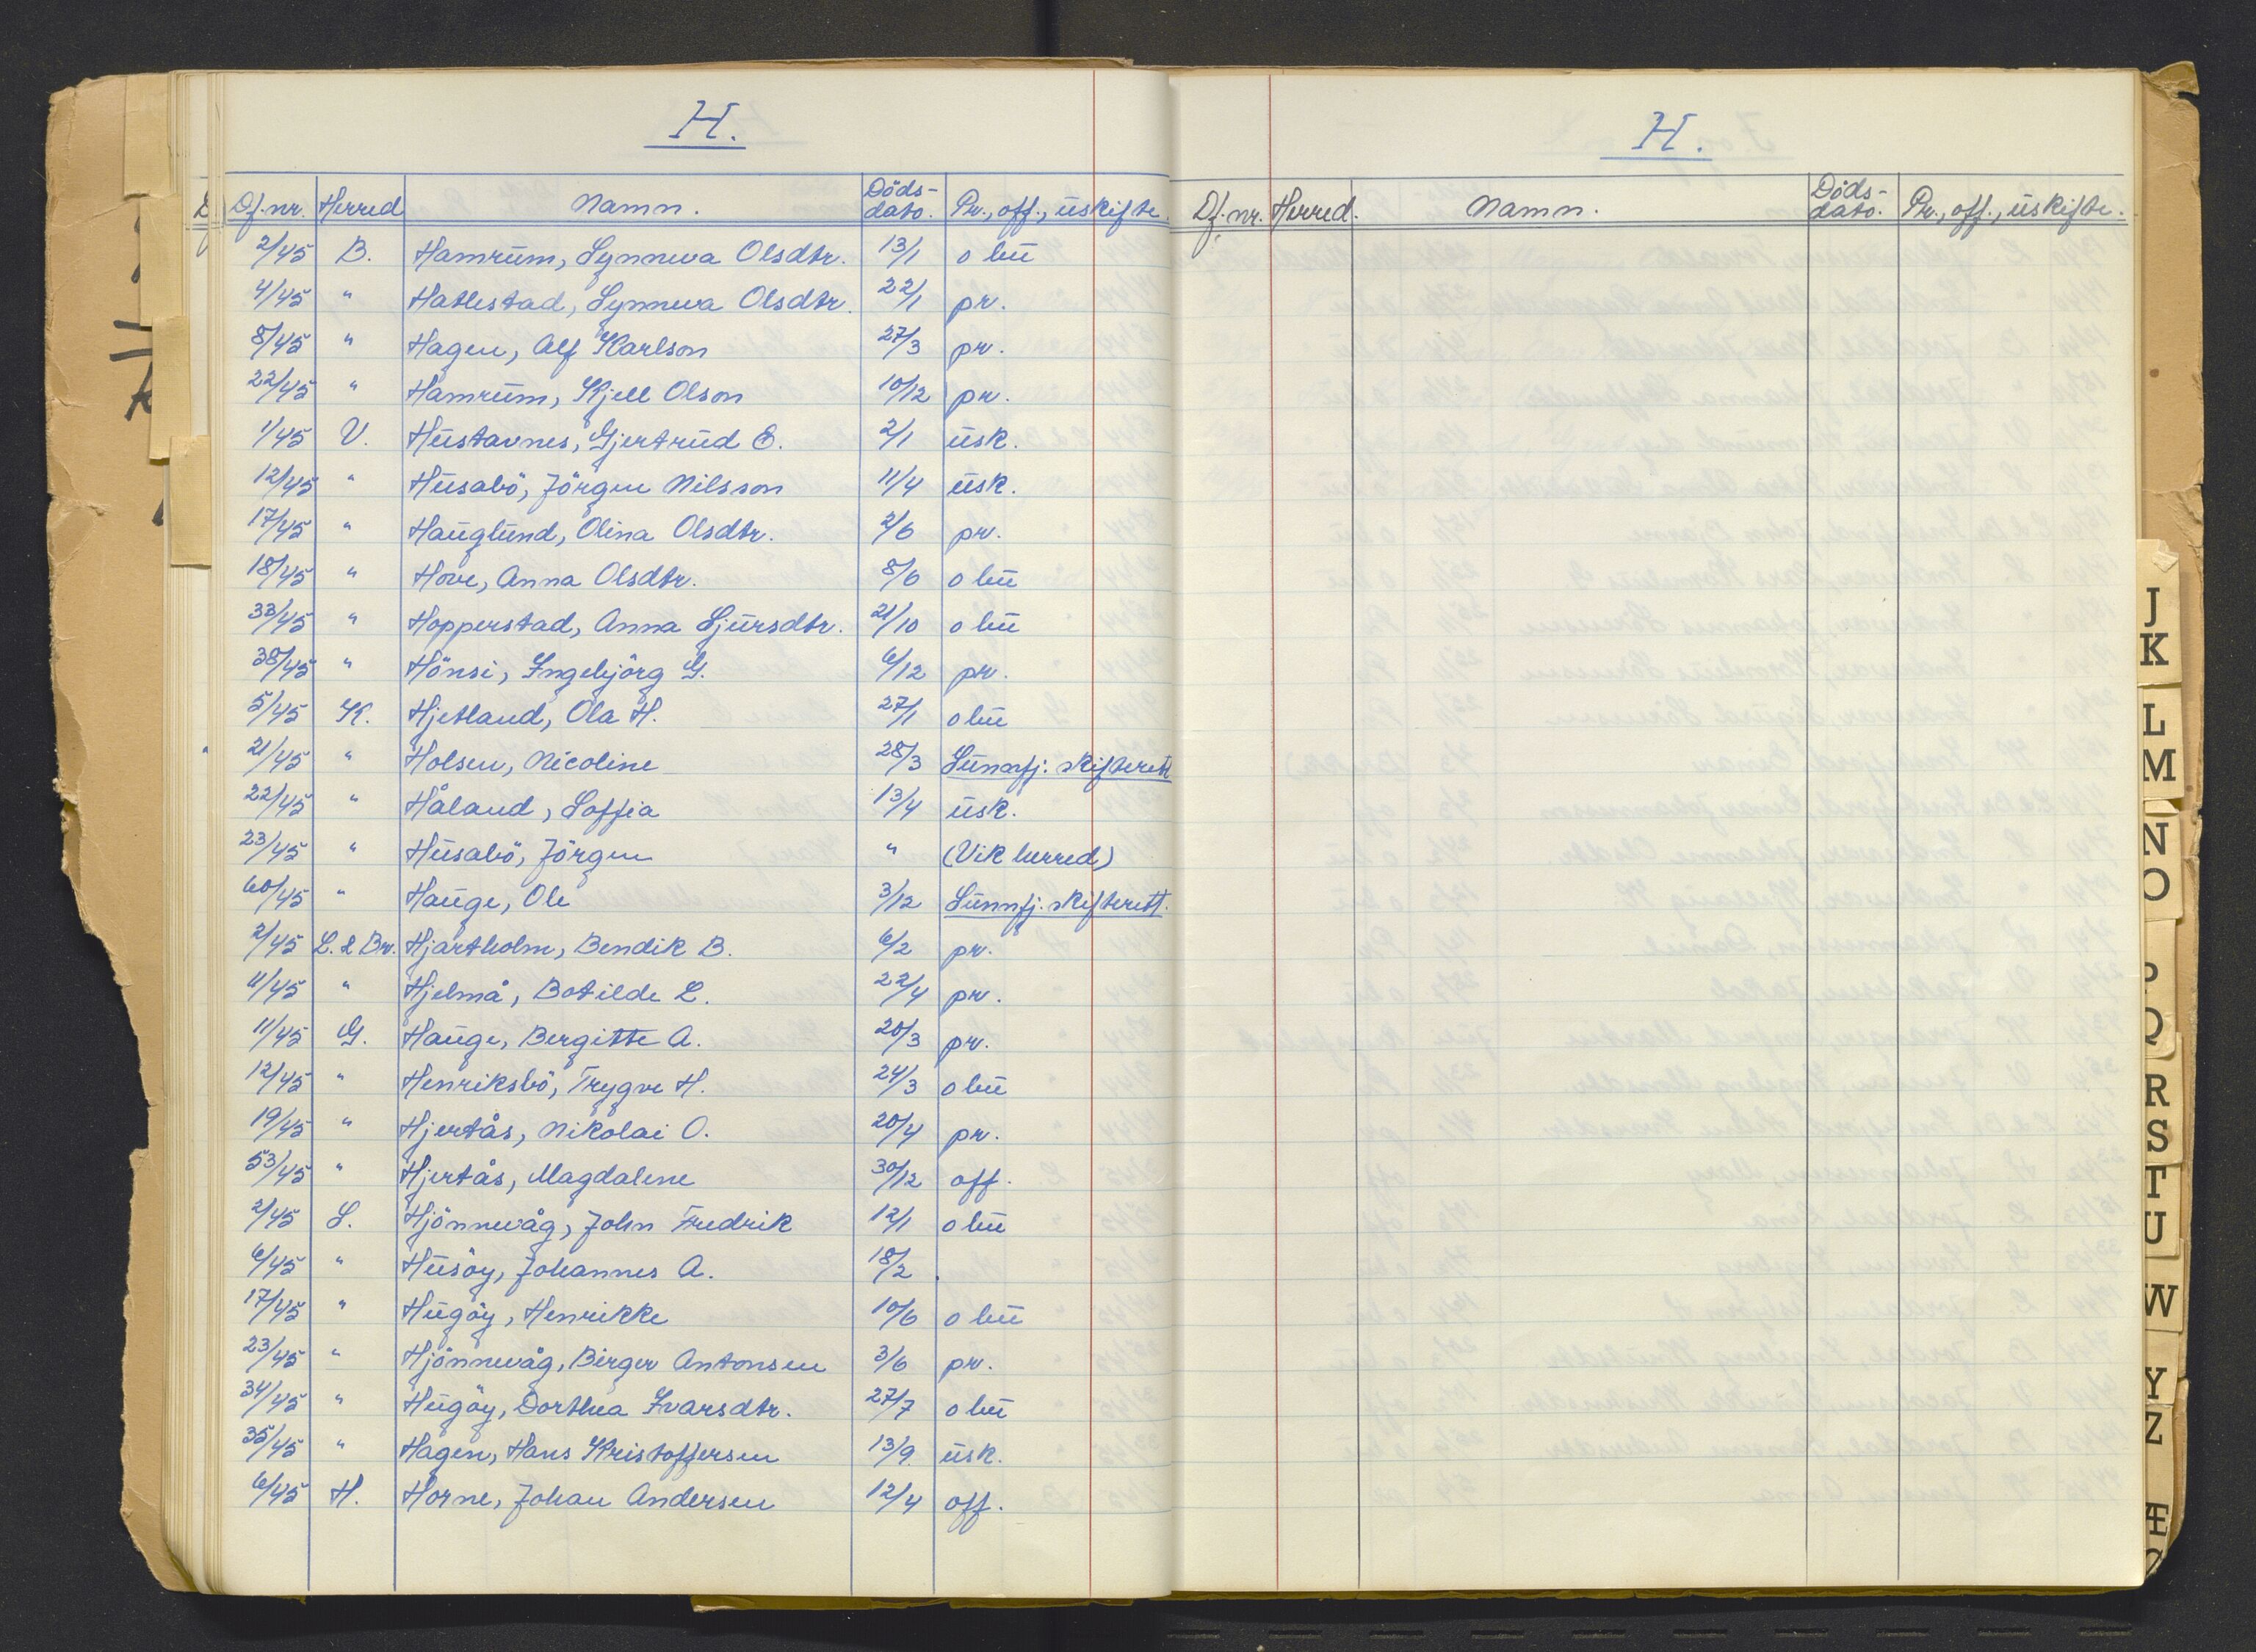 H.
Df.nr. Herred Namn. Döds-dato. Pr., off., uskifte.
2/45 B. Hamrum, Synneva Olsdtr. 13/1 o bu
4/45 " Hatlestad, Synneva Olsdtr. 22/1 pr.
8/45 " Hagen, Alf Karlson 27/3 pr.
22/45 " Hamrum, Kjell Olson 10/12 pr.
1/45 V. Hustavnes, Gjertrud E. 2/1 usk.
12/45 " Husabö, Jörgen Nilsson 11/4 usk.
17/45 " Hauglund, Olina Olsdtr. 2/6 pr.
18/45 " Hove, Anna Olsdtr. 8/6 o bu
33/45 " Hopperstad, Anna Sjursdtr. 21/10 o bu
38/45 " Hönsi, Ingebjörg G. 6/12 pr.
5/45 K. Hjetland, Ola H. 27/1 o bu
21/45 " Holsen, Nicoline 28/3 Sunnfj. skifterett
22/45 " Håland, Soffia 13/4 usk.
23/45 " Husabö, Jörgen " (Vik herred)
60/45 " Hauge, Ole 3/12 Sunnfj. skifterett.
2/45 L. & Br. Hjartholm, Bendik B. 6/2 pr.
11/45 " Hjelmå, Botilde L. 22/4 pr.
11/45 G. Hauge, Bergitte A. 20/3 pr.
12/45 " Henriksbö, Trygve H. 24/3 o bu
19/45 " Hjertås, Nikolai O. 20/4 pr.
53/45 " Hjertås, Magdalene 30/12 off.
2/45 S. Hjönnevåg, John Fredrik 12/1 o bu
6/45 " Husöy, Johannes A. 18/2
17/45 " Hugöy, Henrikke 10/6 o bu
23/45 " Hjönnevåg, Birger Antonsen 3/6 pr.
34/45 " Hugöy, Dorthea Ivarsdtr. 27/7 o bu
35/45 " Hagen, Hans Kristoffersen 13/9 usk.
6/45 H. Horne, Johan Andersen 12/4 off.
H.
Df.nr. Herred. Namn. Döds-dato. Pr., off., uskifte.
J
K
L
M
N
O
P
Q
R
S
T
U
W
Y
Z
Æ